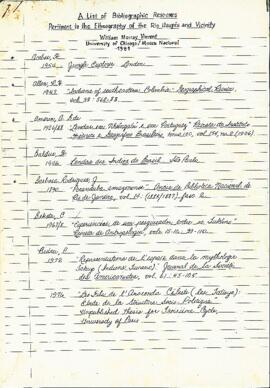 A List of Bibliographic Resources
Pertinent to the Ethnography of the Rio Uaupés and Vicinity
William Murray Vincent
University of Chicago / Museu Nacional
1981
1954 Jungle Explorer. London.
Allen, P.H.
"Indians of southeastern Colombia." Geographical Review,
vol. 37: 568-82.
Amorim, A. B. de
1926/28 "Lendas em Nheêngatú e em Portuguez." Revista do Instituto
Histórico e Geográfico Brasileiro, tomo 100, vol. 154, no. 2 (1926)
Baldus, H.
Lendas dos Índios do Brasil. São Paulo.
Barbosa Rodrigues, J.
1890 "Poranduba amazonense." Annaes da Biblioteca Nacional de
Rio de Janeiro, vol. 14. (1886/1887), fasc. 2.
"Experiências de um pesquisador entre os Tukâno"
Revista de Antropologia, vols. 15-16: 99-110.
1972 "Représentations de l'espace dans la mythologie
Tatuyo (Indiens Tucano)." Journal de la Société
des Américanistes, vol. 61: 45-105.
"Des Fils de l'Anaconda Céleste (les Tatuyo):
Etude de la Structure Socio-Politique."
Unpublished thesis for Troisième Cycle,
University of Paris